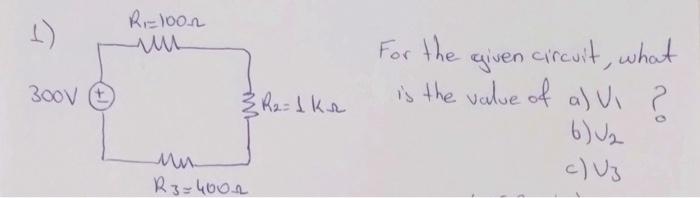 1)
R1=100Ω
300V
R2=1KΩ
R3=400Ω
For the given circuit, what
is the value of a) V1 ?
b) V2
c) V3